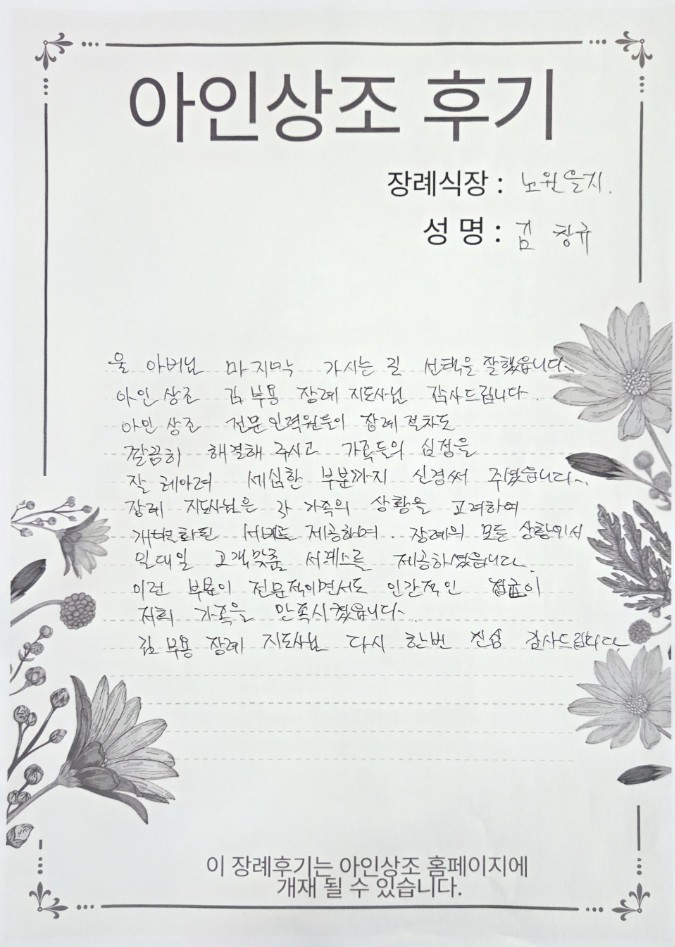 아인상조 후기
장례식장 : 노원을지.
성 명 : 김 창규
울 아버님 마지막 가시는 길 선택을 잘했습니다.
아인상조 김부용 장례지도사님 감사드립니다.
아인상조 전문인력원들이 장례절차도
깔끔히 해결해 주시고 가족들의 심정을
잘 헤아려 세심한 부분까지 신경써 주셨습니다.
장례 지도사님은 각 가족의 상황을 고려하여
개별화된 서비스 제공하며.. 장례의 모든 상황에서
일대일 고객맞춤 서비스를 제공하였습니다.
이런 부분이 전문적이면서도 인간적인 이
저희 가족을 만족시켰습니다.
김부용 장례 지도사님 다시 한번 진심 감사드립니다
이 장례후기는 아인상조 홈페이지에
개재 될 수 있습니다.